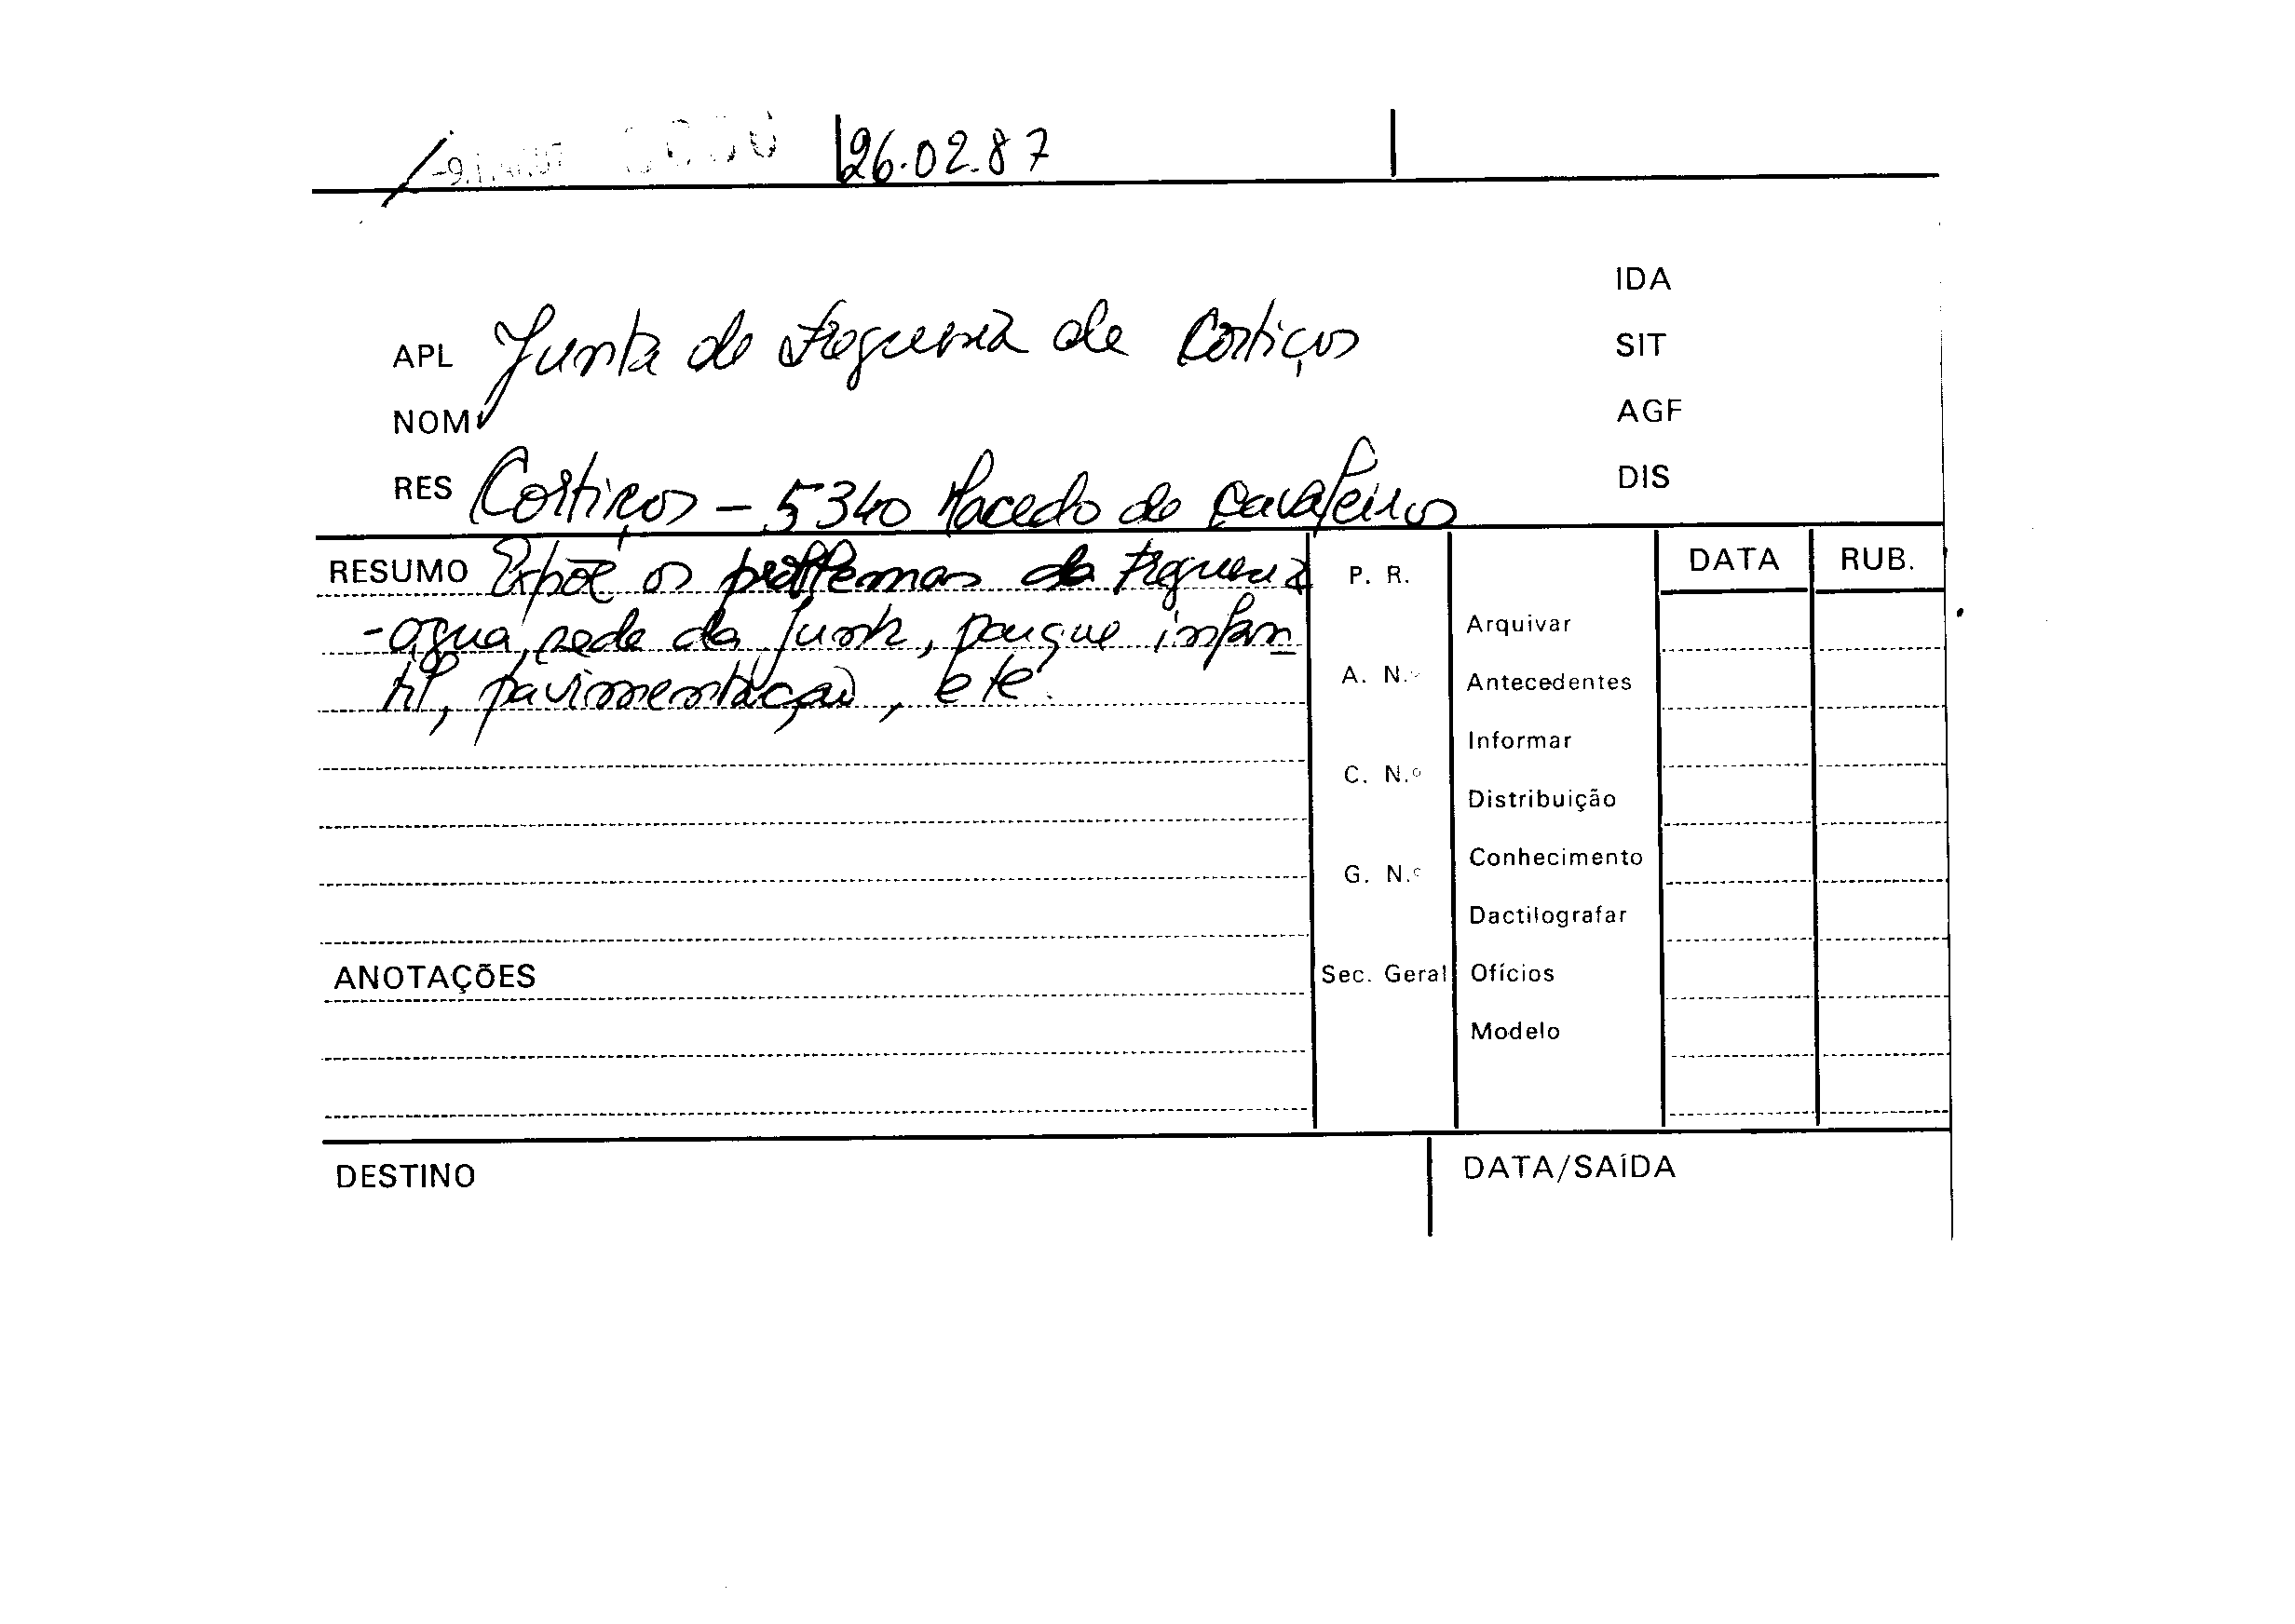 26.02.87
IDA
APL Junta de Freguesia de Cortiços
SIT
NOM
AGF
RES Cortiços - 5340 Macedo de Cavaleiros
DIS
RESUMO Expõe os problemas da Freguesia
- água, sede da Junta, parque infan
til, pavimentação, etc.
P. R.
A. N.º
C. N.º
G. N.º
Sec. Geral
Arquivar
Antecedentes
Informar
Distribuição
Conhecimento
Dactilografar
Ofícios
Modelo
DATA
RUB.
ANOTAÇÕES
DESTINO
DATA/SAÍDA